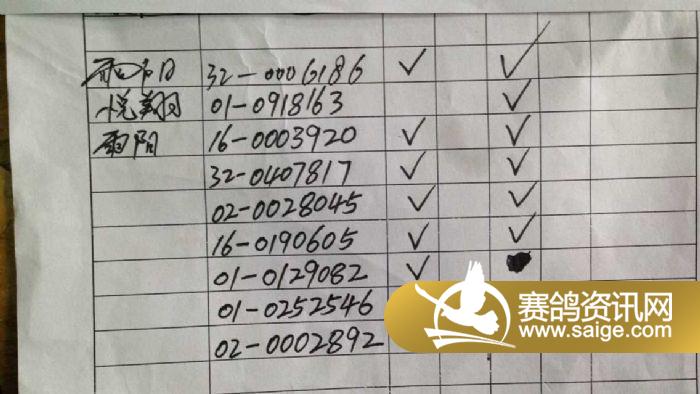 32-0006186 ✓ ✓
悦翔 01-0918163 ✓
雨阳 16-0003920 ✓ ✓
32-0407817 ✓ ✓
02-0028045 ✓ ✓
16-0190605 ✓ ✓
01-0129082 ✓
01-0252546
02-0002892
赛鸽资讯网
www.saige.com